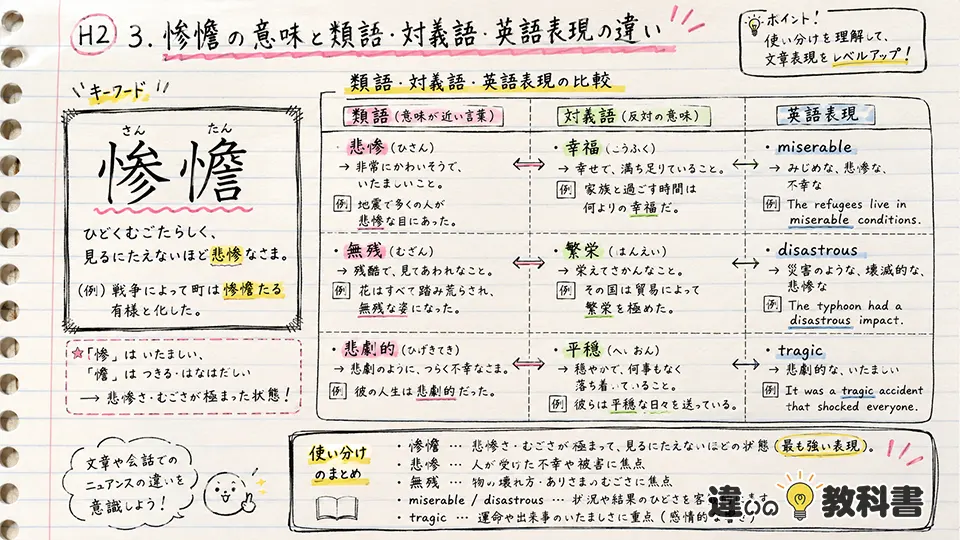 H2 3. 惨憺の意味と類語・対義語・英語表現の違い
ポイント!
使い分けを理解して、
文章表現をレベルアップ!
キーワード
さん たん
惨憺
ひどくむごたらしく、
見るにたえないほど悲惨なさま。
(例) 戦争によって町は惨憺たる
有様と化した。
☆「惨」はいたましい、
「憺」はつきる・はなはだしい
→ 悲惨さ・むごさが極まった状態!
文章や会話での
ニュアンスの違いを
意識しよう!
類語・対義語・英語表現の比較
類語(意味が近い言葉)
対義語(反対の意味)
英語表現
・悲惨(ひさん)
→ 非常にかわいそうで、
いたましいこと。
例 地震で多くの人が
悲惨な目にあった。
↔
・幸福(こうふく)
→ 幸せで、満ち足りていること。
例 家族と過ごす時間は
何よりの幸福だ。
↔
・miserable
→ みじめな、悲惨な、
不幸な
例 The refugees live in
miserable conditions.
・無残(むざん)
→ 残酷で、見てあわれなこと。
例 花はすべて踏み荒らされ、
無残な姿になった。
↔
・繁栄(はんえい)
→ 栄えてさかんなこと。
例 その国は貿易によって
繁栄を極めた。
↔
・disastrous
→ 災害のような、壊滅的な、
悲惨な
例 The typhoon had a
disastrous impact.
・悲劇的(ひげきてき)
→ 悲劇のように、つらく不幸なさま。
例 彼の人生は悲劇的だった。
↔
・平穏(へいおん)
→ 穏やかで、何事もなく
落ち着いていること。
例 彼らは平穏な日々を送っている。
↔
・tragic
→ 悲劇的な、いたましい
例 It was a tragic accident
that shocked everyone.
使い分け
のまとめ
・惨憺 … 悲惨さ・むごさが極まって、見るにたえないほどの状態(最も強い表現)。
・悲惨 … 人が受けた不幸や被害に焦点
・無残 … 物の壊れ方・ありさまのむごさに焦点
・miserable / disastrous … 状況や結果のひどさを客
・tragic … 運命や出来事のいたましさに重点(感情的な
違いの教科書